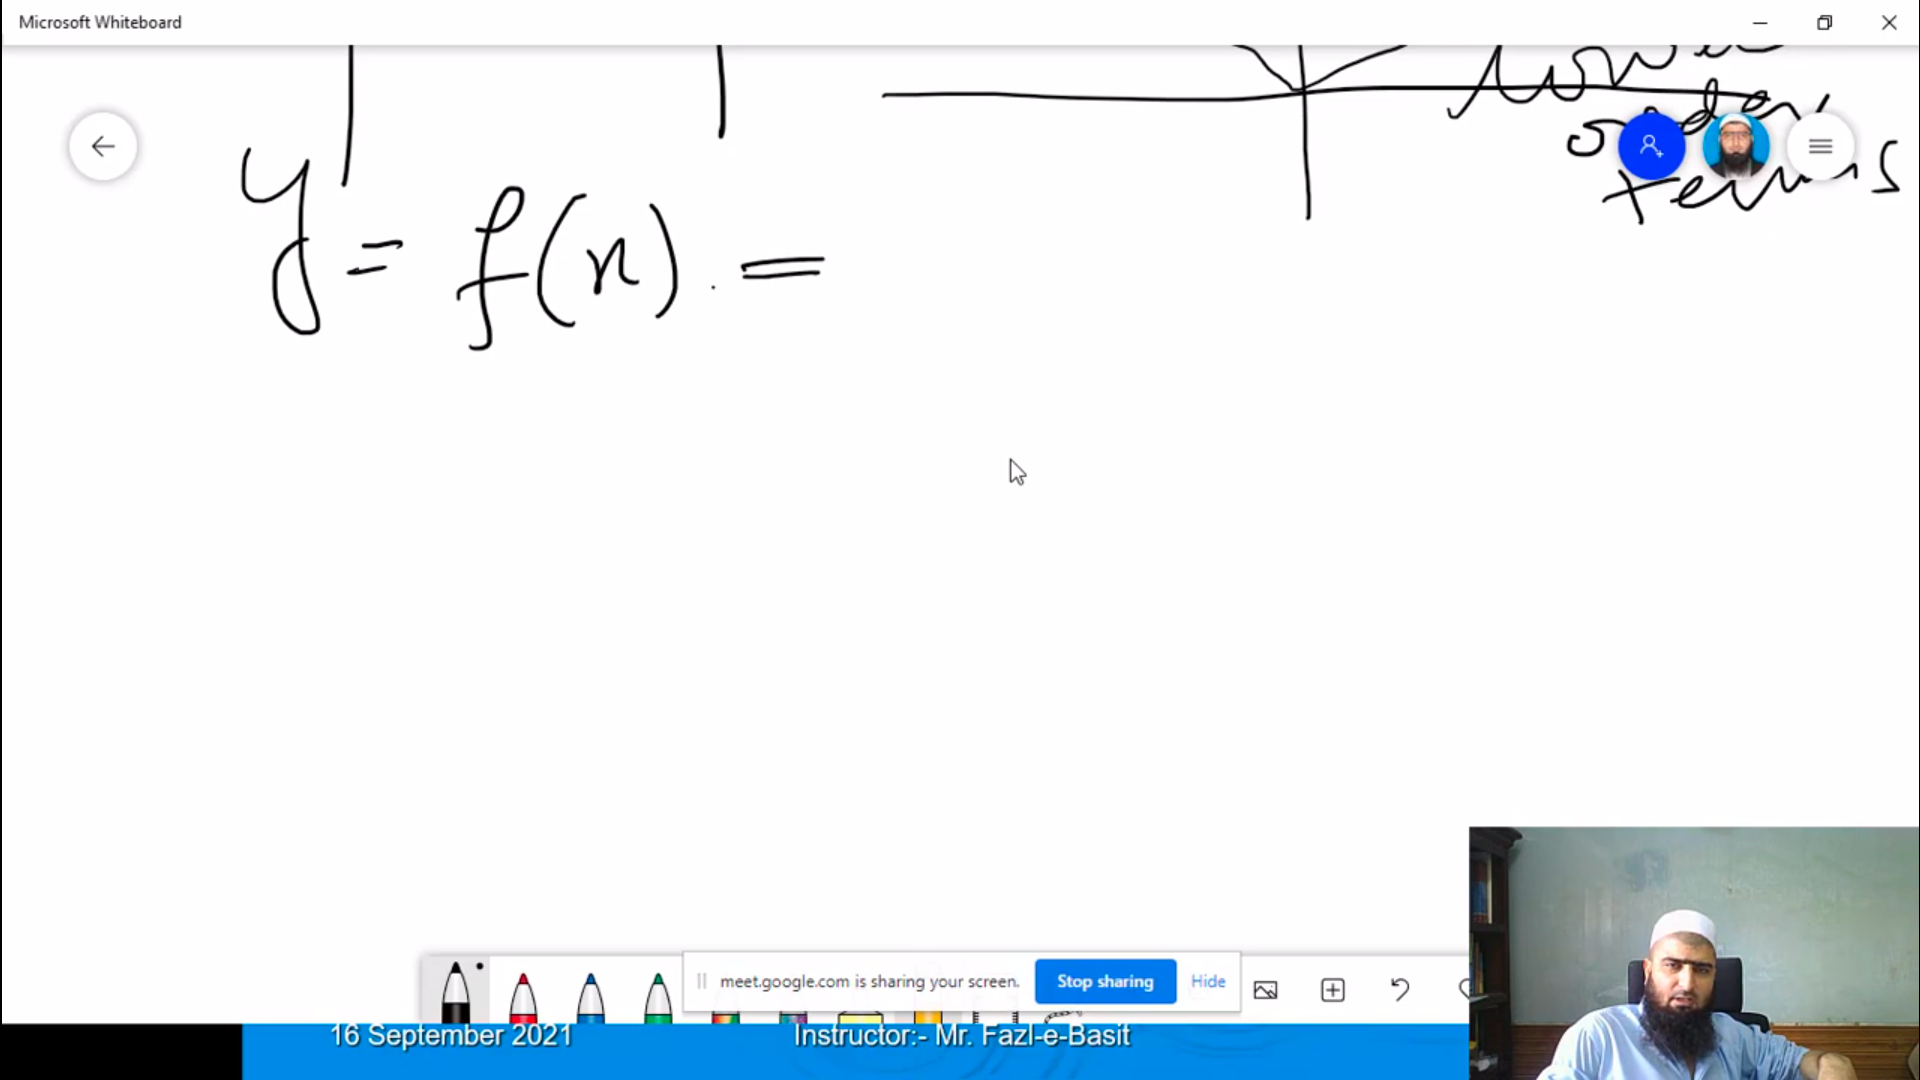 Microsoft Whiteboard
lower
order
terms
y = f(x). =
meet.google.com is sharing your screen. Stop sharing Hide
16 September 2021 Instructor:- Mr. Fazl-e-Basit